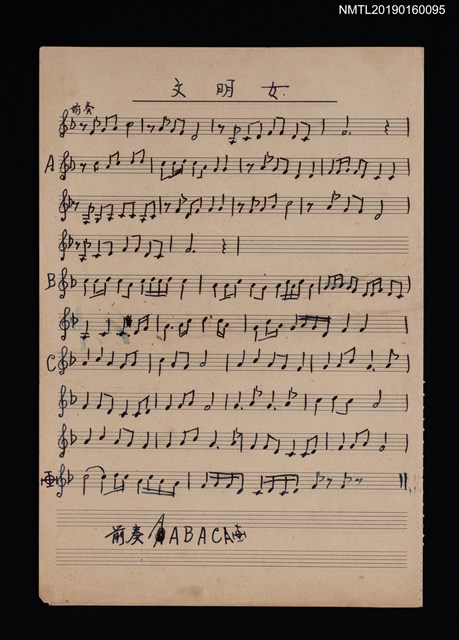 NMTL20190160095
文明女
前奏
A
B
C
前奏 A B A C A